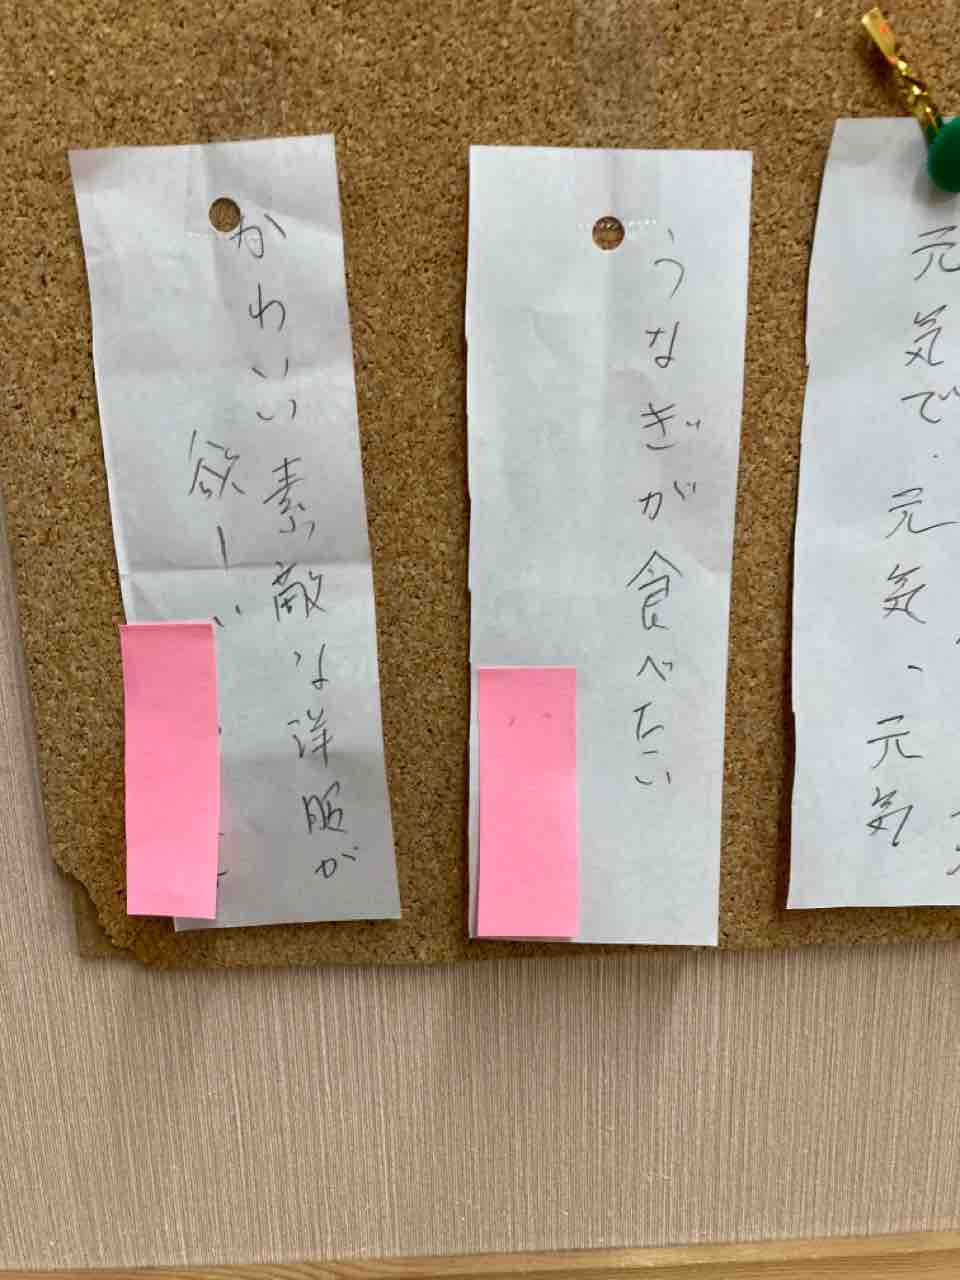 元気で.元気、元気
うなぎが食べたい
かわいい素敵な洋服が
欲しい